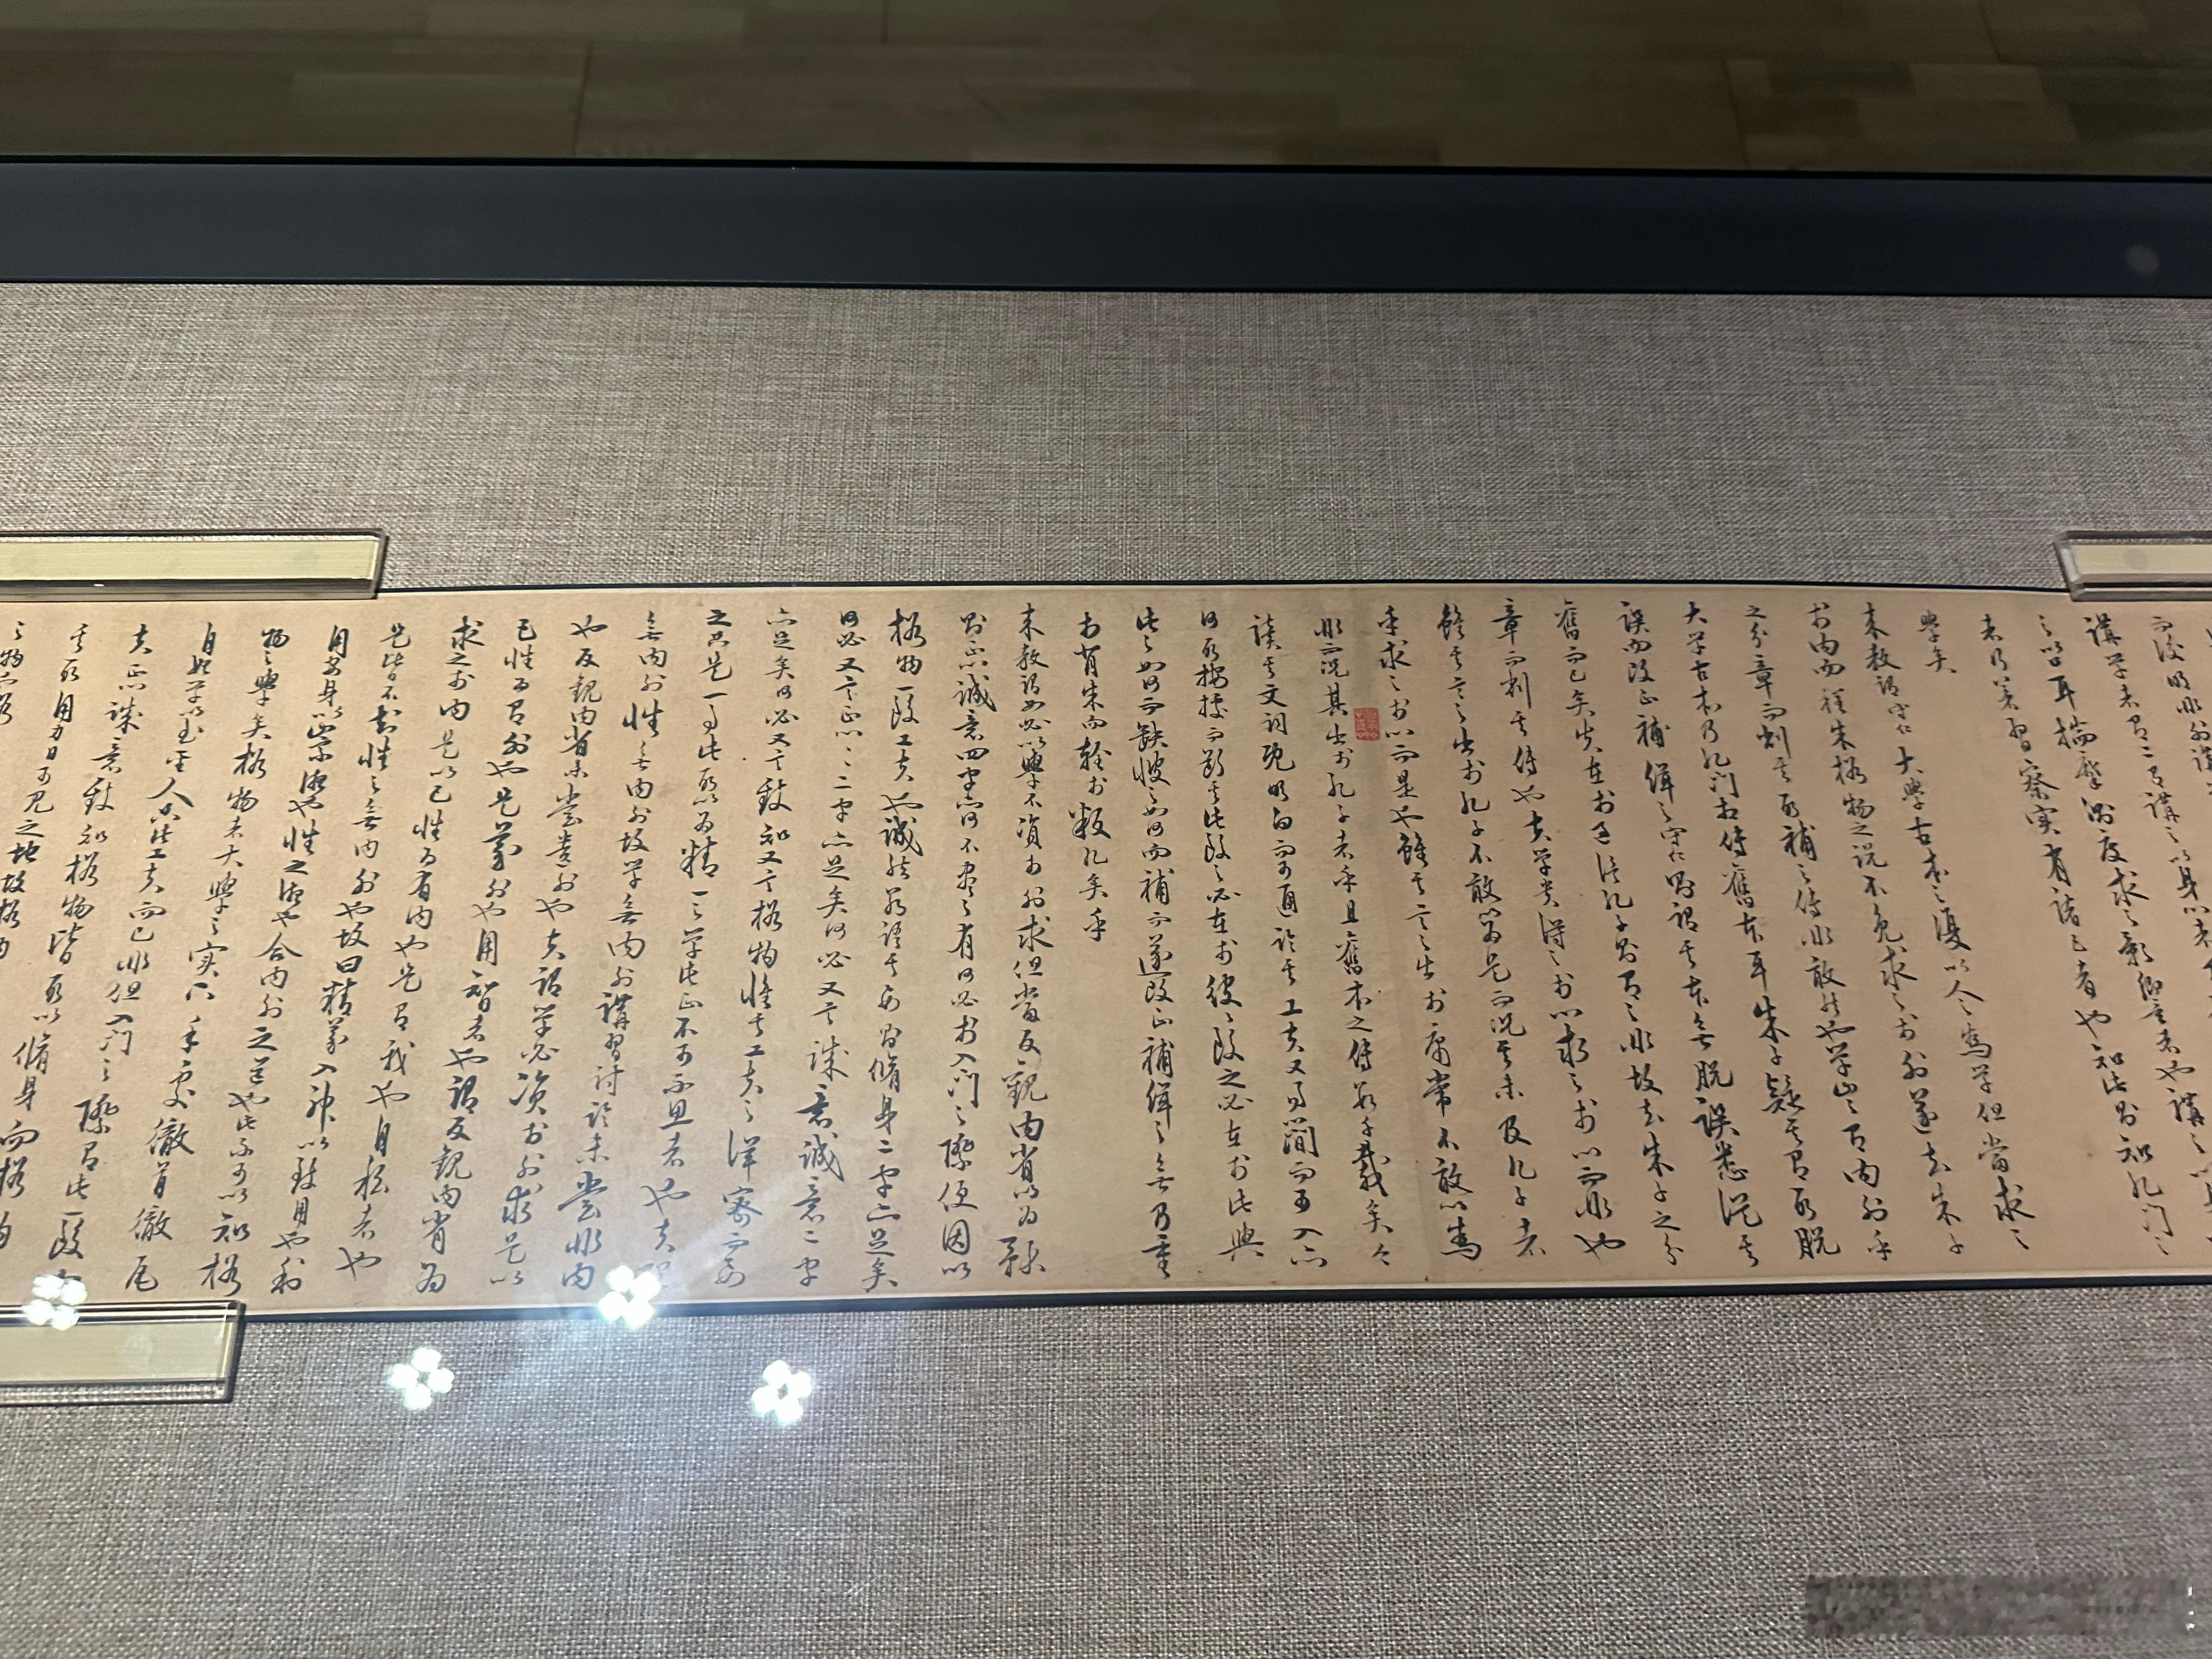 而後明非外講
講学者有二有講之以身心者
之以口耳揣摩測度求之影響者也講之以身
者行著習察實有諸己者也知此則知孔門之
學矣
来教謂守仁大學古本之復以人之為学但當求之
於内而程朱格物之说不免求之於外遂去朱子
之分章而削其所補之傳非敢然也学豈有内外乎
大学古本乃孔门相傳舊本耳朱子疑其有所脱
誤而改正補緝之守仁則謂其本無脱誤悉從其
舊而已矣失在於過信孔子則有之非故去朱子之分
章而削其傳也夫学貴得之於心求之於心而非也
雖其言之出於孔子不敢以為是也而況其未及孔子者
乎求之於心而是也雖其言之出於庸常不敢以為
非也而況其出於孔子者乎且舊本之傳数千载矣今
讀其文词既明白而可通论其工夫又易簡而可入亦
何所按據而斷其此段之必在於彼彼段之必在於此與
此之如何而缺彼之如何而補而遂改正補緝之無乃重
於背朱而輕於叛孔矣乎
来教謂如必以學不资於外求但當反觀内省以为務
則正心誠意四字亦何不盡之有何必於入门之際便困以
格物一段工夫也誠然若語其要則脩身二字亦足矣
何必又言正心正心二字亦足矣何必又言诚意誠意二字
亦足矣何必又言致知又言格物惟其工夫之详密而要
之只是一事此所以为精一之学此正不可不思者也夫理
無内外性無内外故学無内外講習讨论未嘗非内
也反觀内省未嘗遺外也夫謂学必资於外求是以
己性为有外也是義外也用智者也謂反觀内省为
求之於内是以己性为有内也是有我也自私者也
是皆不知性之無内外也故曰精義入神以致用也利
用安身以崇德也性之德也合内外之道也此可以知格
物之學矣格物者大學之实下手處徹首徹尾
自始学以至聖人只此工夫而已非但入门之際有此一段
夫正心诚意致知格物皆所以脩身而格物
其所用力日可见之地故格物